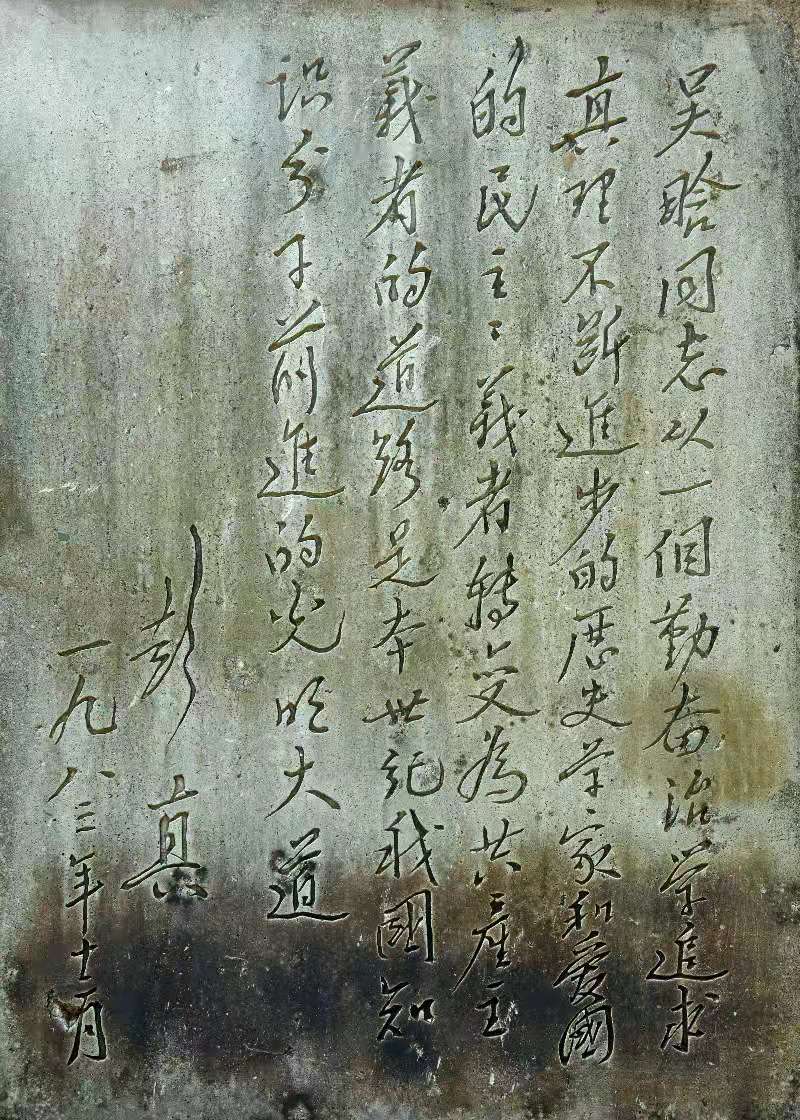 吴晗同志以一個勤奋治学追求
真理不断進步的历史学家和爱國
的民主主義者转变為共產主
義者的道路是本世纪我國知
识分子前進的光明大道
彭真
一九八三年十一月